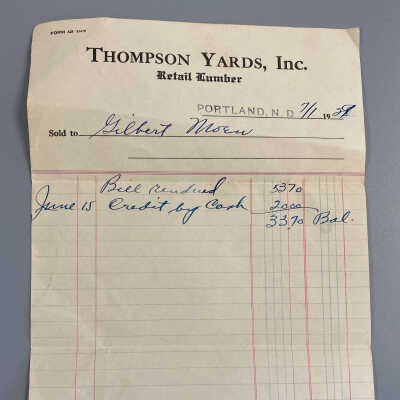 THOMPSON YARDS, INC.
Retail Lumber
PORTLAND, N. D. 7/1 1929
Sold to Gilbert Moen
Bill rendered 5370
June 15 Credit by Cash 2000
3370 Bal.